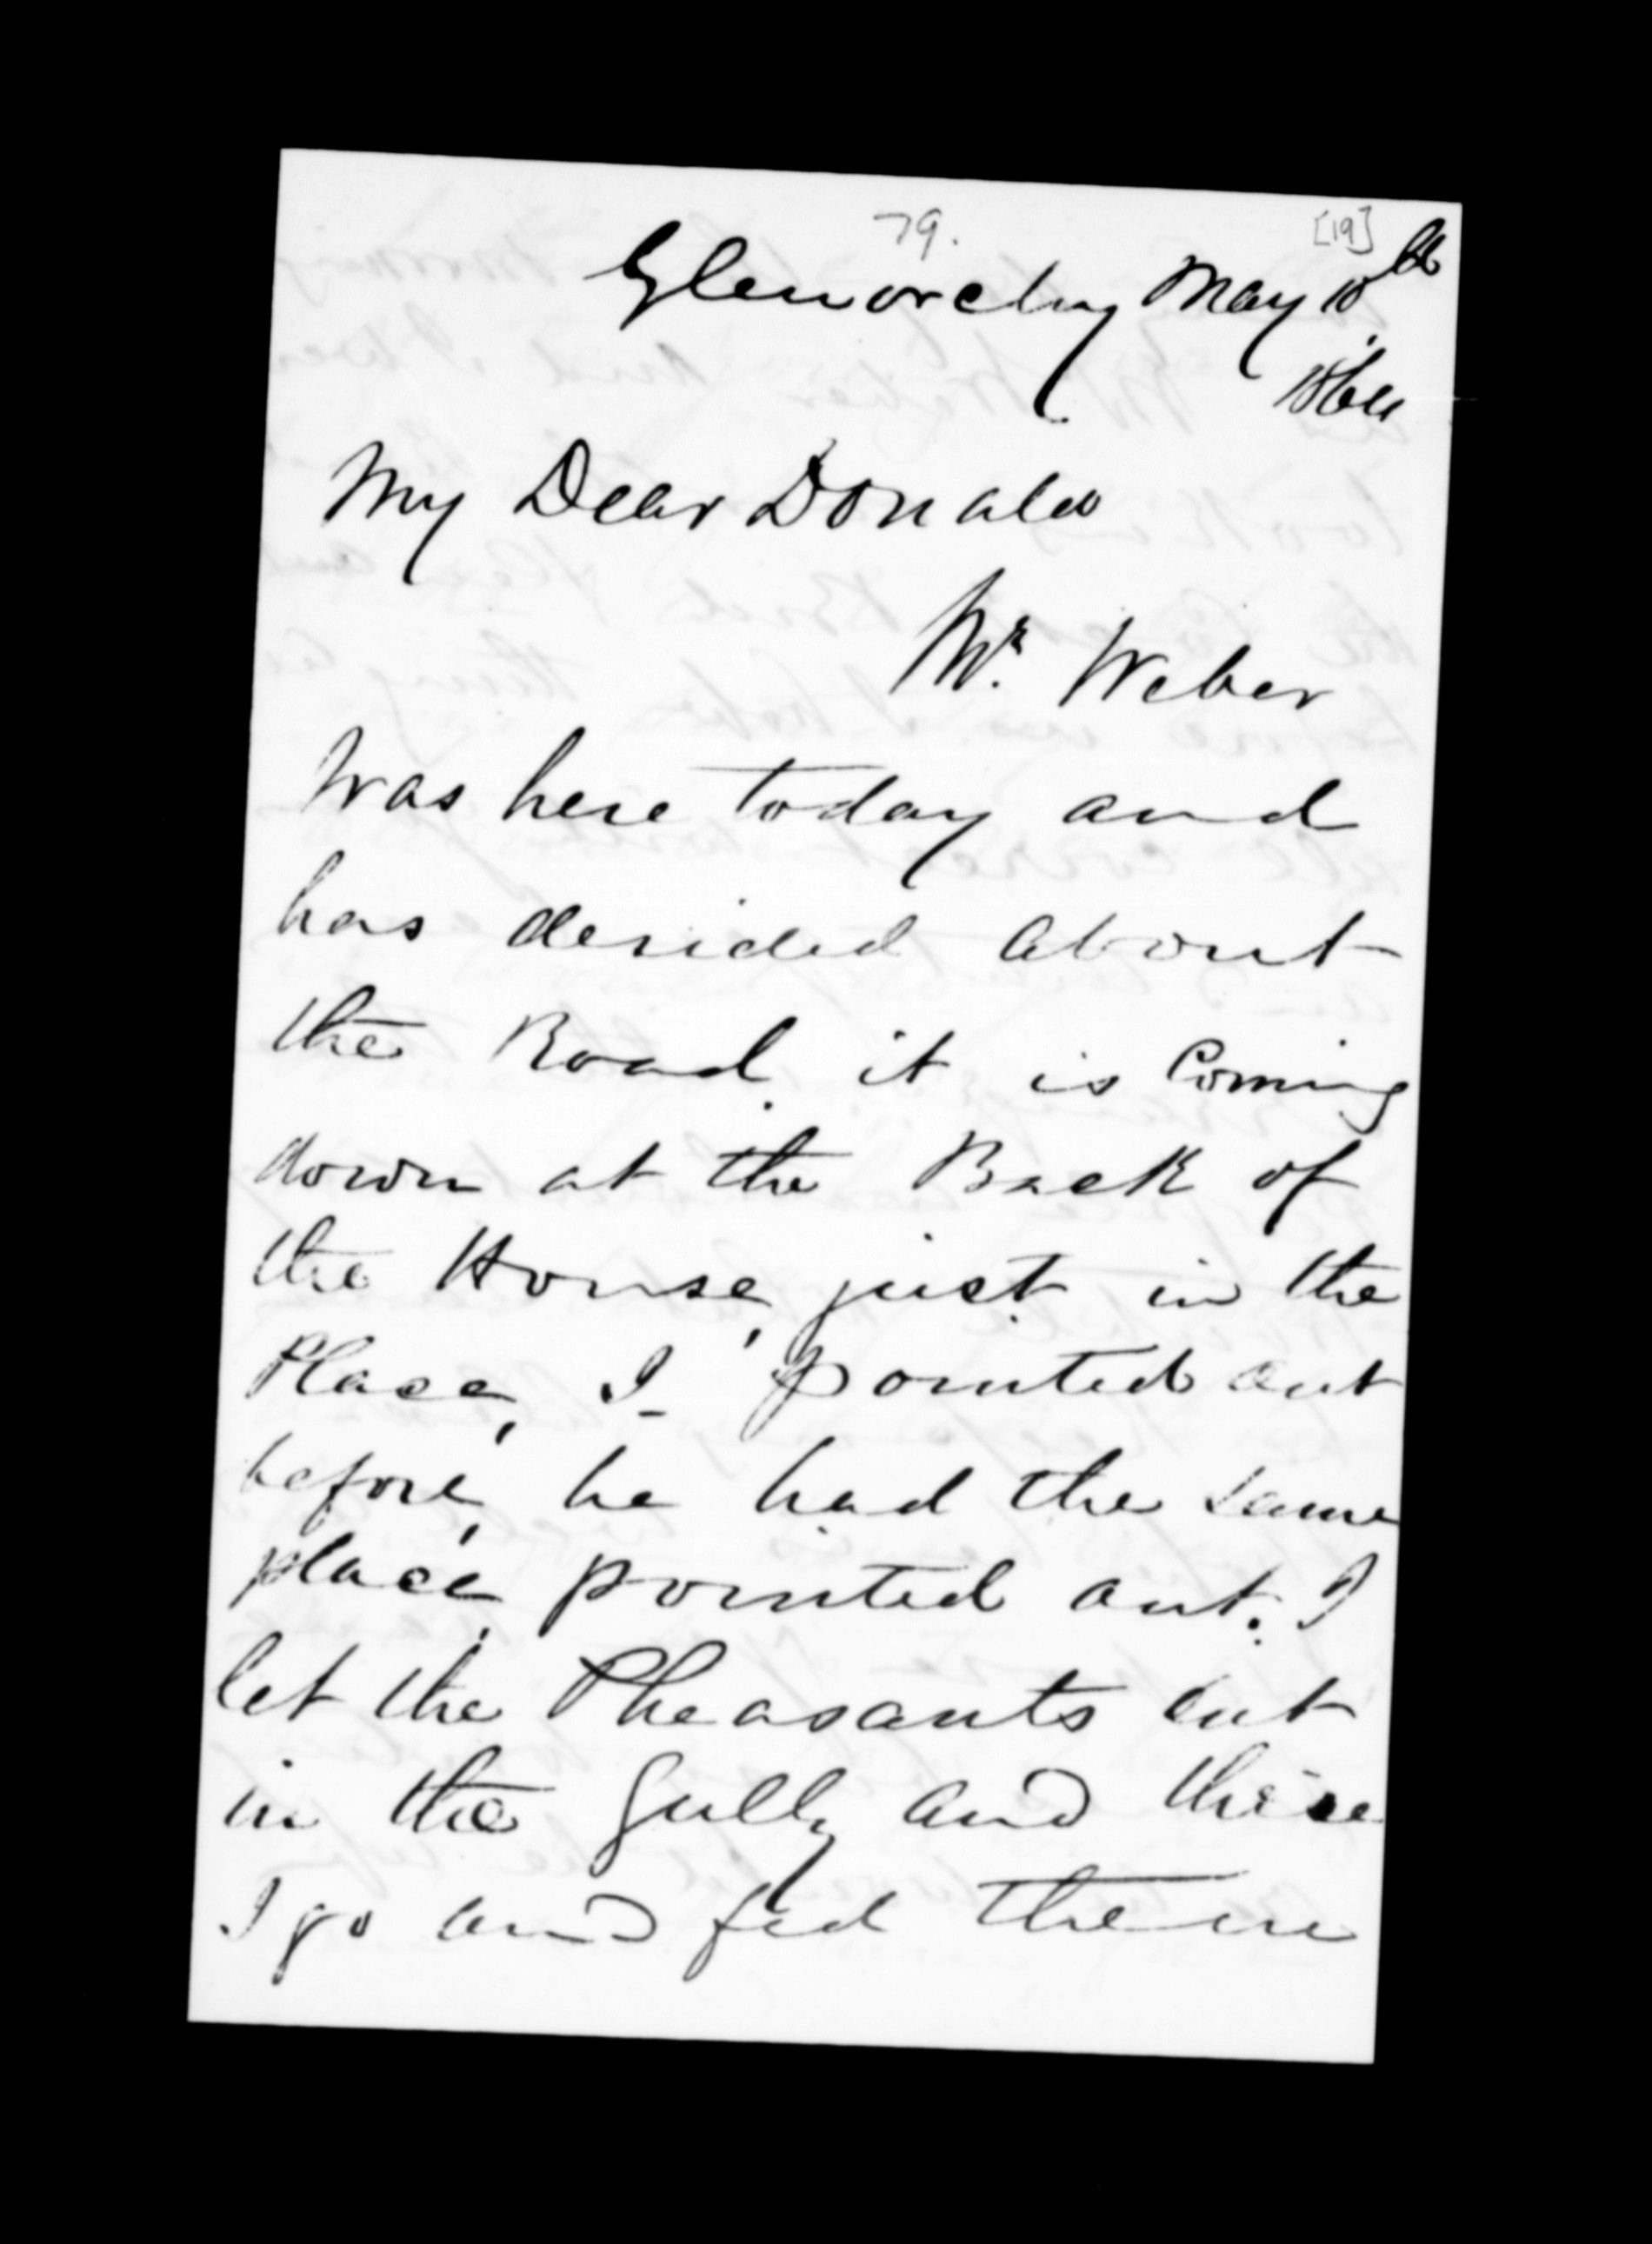 79.
[19]
Glenorchy May 18th
1864
My Dear Donald
Mr. Weber
Was here today and
has desided about
the Road. it is Coming
down at the Back of
the House, just in the
Place, I pointed out
before, he had the same
place, pointed out. I
let the Pheasants out
in the Gully and there
I go and fed them